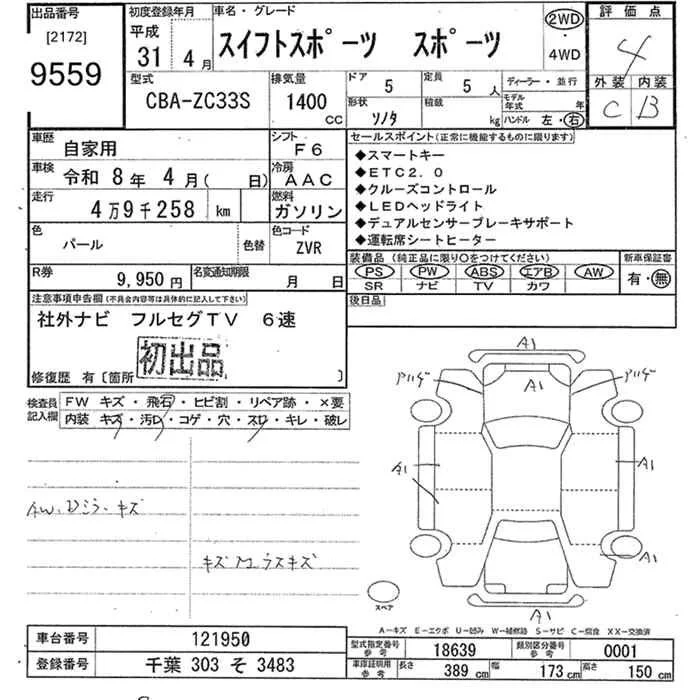 出品番号 初度登録年月 車名・グレード 評価点
[2172] 平成 2WD
9559 31 4月 スイフトスポーツ スポーツ ・ 4
4WD
型式 排気量 ドア 5 定員 5人 ディーラー・並行 外装 内装
CBA-ZC33S 1400cc 形状 積載 kg モデル年式 年 C B
ハンドル 左・右
車歴 自家用 シフト F6 セールスポイント(正常に機能するものに限ります)
車検 令和 8年 4月( 日) 冷房 AAC ◆スマートキー
◆ETC2.0
走行 4万9千258 km 燃料 ガソリン ◆クルーズコントロール
◆LEDヘッドライト
色 パール 色替 色コード ZVR ◆デュアルセンサーブレーキサポート
◆運転席シートヒーター
R券 9,950円 名変通知期限 月 日 装備品(純正品に限り○をつけてください) 新車保証書
PS PW ABS エアB AW 有・無
SR ナビ TV カワ
注意事項申告欄(不具合内容等は具体的に記入して下さい) 後日品
社外ナビ フルセグTV 6速
初出品
修復歴 有〔箇所 〕
検査員記入欄 FW キズ・飛石・ヒビ割・リペア跡・×要
内装 キズ・汚レ・コゲ・穴・スレ・キレ・破レ
A1
A1
A1
A1
A1
A1
AW、
キズ
キズ
スペア
A-キズ E-エクボ U-凹み W-補修跡 S-サビ C-腐食 XX-交換済
車台番号 121950 型式指定番号参考 18639 類別区分番号参考 0001
登録番号 千葉 303 そ 3483 車庫証明用参考 長さ 389cm 幅 173cm 高さ 150cm